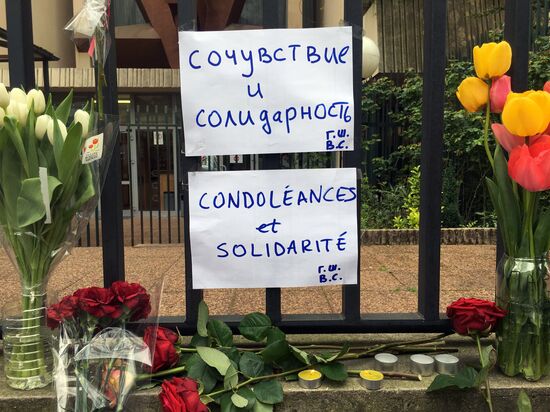 Сочувствие
и
солидарность
Г.Ш.
В.С.
CONDOLÉANCES
et
SOLIDARITÉ
Г.Ш.
В.С.